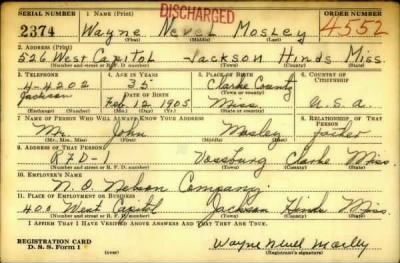 DISCHARGED
SERIAL NUMBER 1. NAME (Print) ORDER NUMBER
2374 Wayne Nevel Mosley 4552
(First) (Middle) (Last)
2. ADDRESS (Print)
526 West Capitol Jackson Hinds Miss.
(Number and street or R. F. D. number) (Town) (County) (State)
3. TELEPHONE 4. AGE IN YEARS 5. PLACE OF BIRTH 6. COUNTRY OF CITIZENSHIP
4-4202 35 Clarke County
Jackson DATE OF BIRTH
Feb 12 1905 Miss U.S.A.
(Exchange) (Number) (Mo.) (Day) (Yr.) (State or country)
7. NAME OF PERSON WHO WILL ALWAYS KNOW YOUR ADDRESS 8. RELATIONSHIP OF THAT PERSON
Mr. John Mosley father
(Mr., Mrs., Miss) (First) (Middle) (Last)
9. ADDRESS OF THAT PERSON
RFD-1 Vossburg Clarke Miss.
(Number and street or R. F. D. number) (Town) (County) (State)
10. EMPLOYER'S NAME
N. O. Nelson Company.
11. PLACE OF EMPLOYMENT OR BUSINESS
400 West Capitol Jackson Hinds Miss.
(Number and street or R. F. D. number) (Town) (County) (State)
I AFFIRM THAT I HAVE VERIFIED ABOVE ANSWERS AND THAT THEY ARE TRUE.
REGISTRATION CARD
D. S. S. Form 1
(over)
Wayne Nevell Mosley
(Registrant's signature)